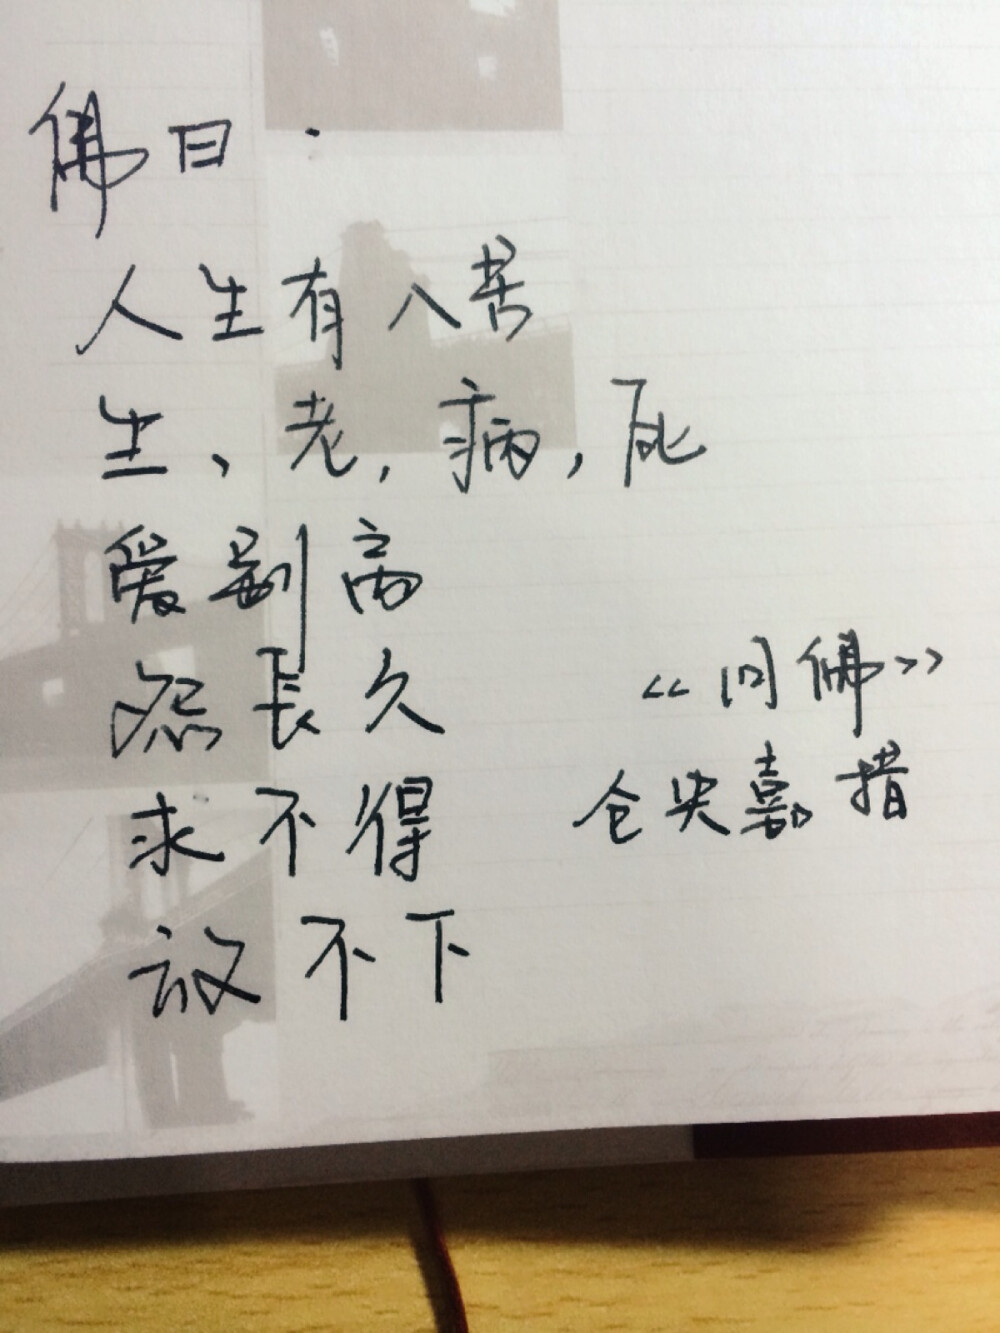 佛曰：
人生有八苦
生、老，病，死
爱别离
怨長久
求不得
放不下
《问佛》
仓央嘉措